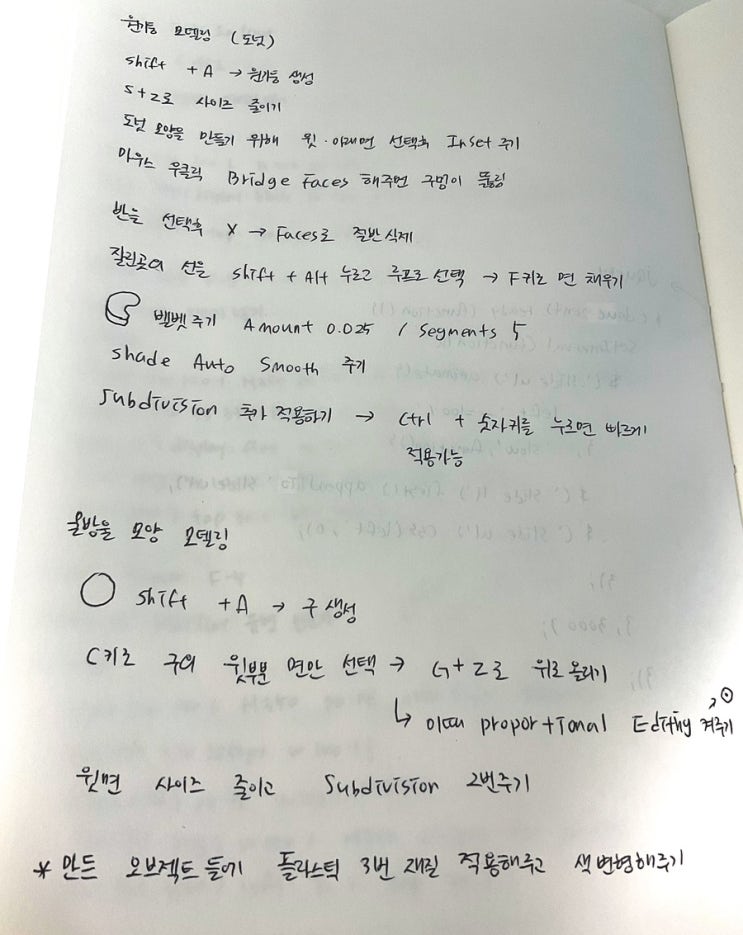 원기둥 모델링 (도넛)
shift + A → 원기둥 생성
S+Z로 사이즈 줄이기
도넛 모양을 만들기 위해 윗·아래면 선택후 Inset 주기
마우스 우클릭 Bridge Faces 해주면 구멍이 뚫림
반을 선택후 X → Faces로 절반 삭제
잘린곳의 선을 shift + Alt 누르고 루프로 선택 → F키로 면 채우기
벨벳 주기 Amount 0.025 / segments 5
shade Auto Smooth 주기
Subdivision 추가 적용하기 → Ctrl + 숫자키를 누르면 빠르게
적용가능
물방울 모양 모델링
shift +A → 구 생성
C키로 구의 윗부분 면만 선택 → G+Z로 위로 올리기
↳ 이때 proportional Editing 켜주기
윗면 사이즈 줄이고 Subdivision 2번주기
* 만든 오브젝트들에 플라스틱 3번 재질 적용해주고 색변형해주기